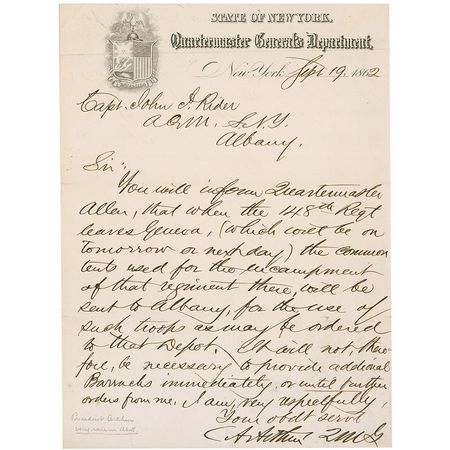 STATE OF NEW YORK.
Quartermaster General's Department,
New York Sept 19, 1862
Capt. John J. Rider
A Q M. S. N. Y.
Albany.
Sir:
You will inform Quartermaster
Allen, that when the 148th Regt
leaves Geneva, (which will be on
tomorrow or next day) the common
tents used for the encampment
of that regiment there, will be
sent to Albany, for the use of
such troops as may be ordered
to that Depot. It will not, there-
fore, be necessary to provide addional
Barracks immediately, or until further
orders from me. I am, very respectfully,
Your obdt servt
C. A. Arthur Q M G
President Arthur